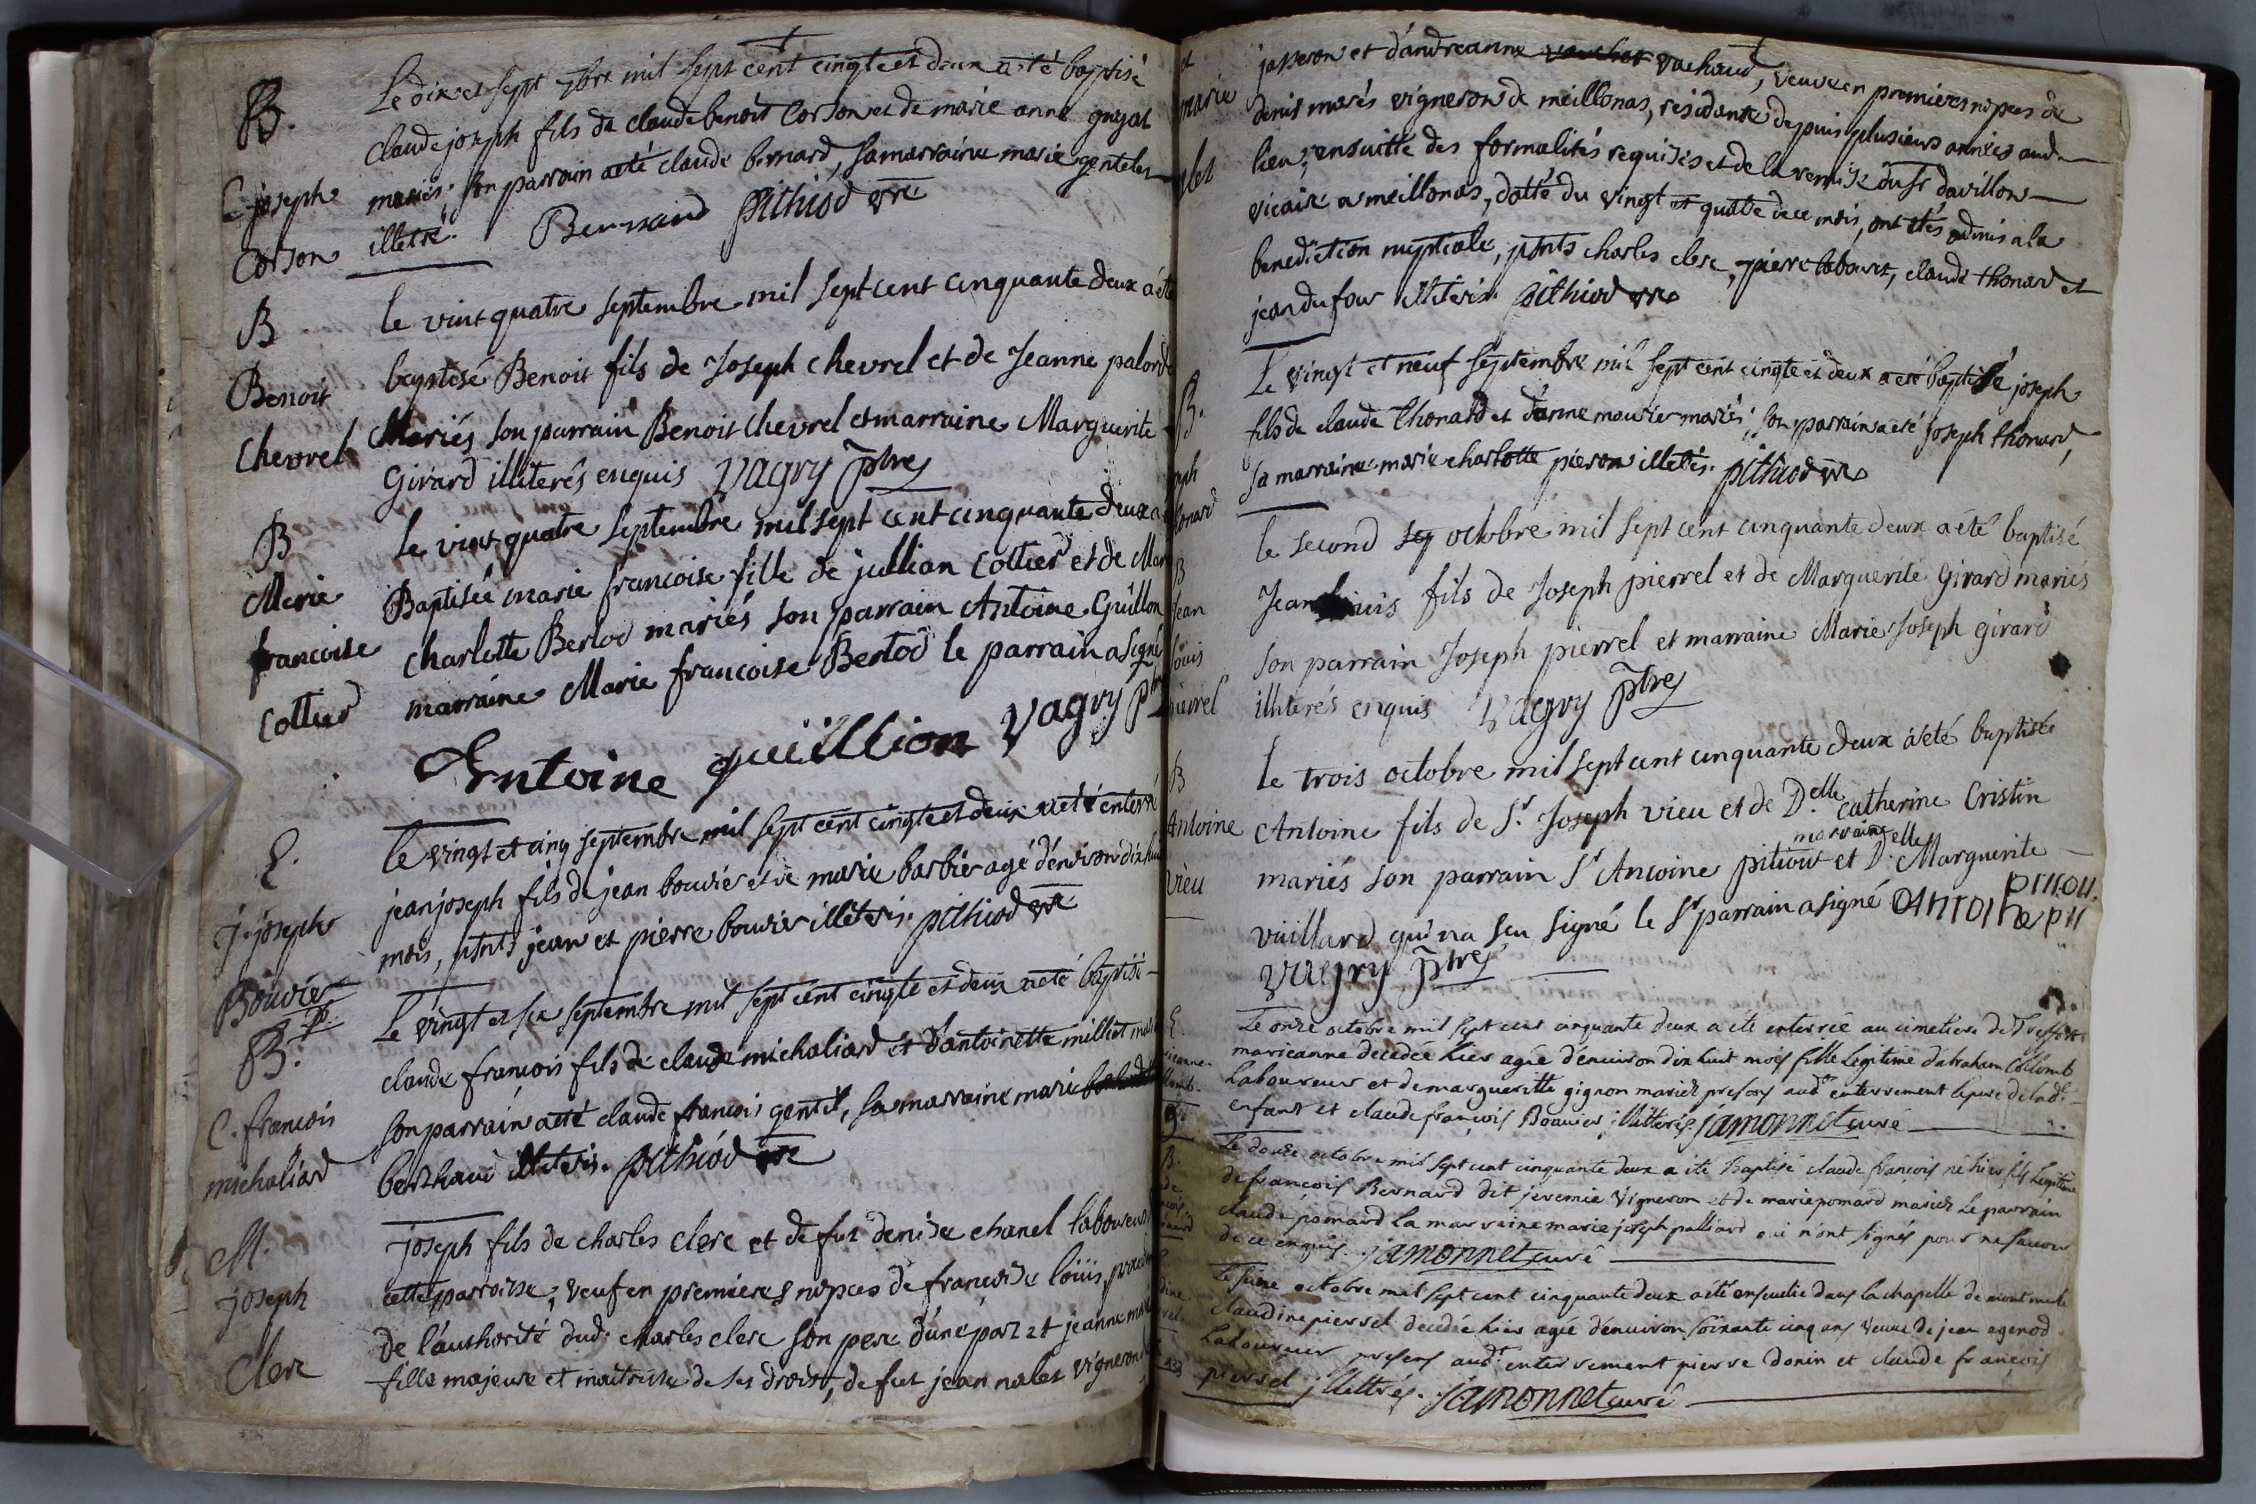 B.
C. joseph
Corson
Le dix et sept 7bre mil sept cent cinqte et deux a eté baptisé
claude joseph fils de claude benoit Corson et de marie anne guyat
mariés. son parrain a eté claude bernard, sa marraine marie gentelet
illetré. Bernard pithiod vre
B
Benoit
Chevrel
le vint quatre septembre mil sept cent cinquante deux a été
baptisé Benoit fils de Joseph Chevrel et de Jeanne palord
Mariés son parrain Benoit Chevrel et marraine Marguerite
Girard illiterés enquis Vagry ptre
B
Marie
francoise
Collier
le vint quatre septembre mil sept cent cinquante deux a
Baptisée marie francoise fille de jullian Collier et de Mari
charlotte Berlod mariés son parrain Antoine Guillon
marraine Marie francoise Berlod le parrain a signé
Antoine guillion Vagry ptre
E.
J. joseph
Bouvier
p.
le vingt et cinq septembre mil sept cent cinqte et deux a eté enterré
jean joseph fils de jean bouvier et de marie barbier agé d'environ dix huit
mois, pnts jean et pierre bouvier illeterés. pithiod vre
B.
C. francois
michaliard
Le vingt et six septembre mil sept cent cinqte et deux a eté baptisé
claude francois fils de claude michaliard et d'antoinette milliet mar
son parrain a eté claude francois gentil, sa marraine marie
berthaud illeterés. pithiod vre
M.
joseph
Clerc
joseph fils de charles clerc et de fut denise chanel laboureurs
cette parroisse, veuf en premieres nopces de francoise loüis, proced
de l'authorité dud. charles clerc son pere d'une part et jeanne marie
fille majeure et maitrise de ses droits, de fut jean nalet vigneron
et
marie
alet
josseron et d'andreanne vauchat vachaud, veuve en premieres nopces de
denis marés vigneron de meillonas, residante depuis plusieurs années aud.
lieu; ensuitte des formalités requises et de la remise du sr davillon
vicaire a meillonas, datté du vingt et quatre de ce mois, ont étés admis a la
benediction nuptiale, pnts charles clerc, pierre labouret, claude thonard et
jean du four illiterés. pithiod vre
B.
seph
honard
Le vingt et neuf septembre mil sept cent cinqte et deux a eté baptisé joseph
fils de claude thonard et d'anne mourier mariés. son parrain a eté joseph thonard,
sa marraine marie charlotte pieron illetés. pithiod vre
B
Jean
loüis
pierrel
le second octobre mil sept cent cinquante deux a été baptisé
Jean louis fils de Joseph pierrel et de Marguerite Girard mariés
son parrain Joseph pierrel et marraine Marie Joseph Girard
illiterés enquis Vagry ptre
B
Antoine
vieu
le trois octobre mil sept cent cinquante deux a été baptisé
Antoine fils de Sr. Joseph vieu et de D.elle catherine Cristin
mariés son parrain Sr Antoine pitiout et marraine D.elle Marguerite
vuillard qui na seu signé le Sr parrain a signé Antoine pitiou
Vagry ptre
E.
rieanne
Le onze octobre mil sept cent cinquante deux a eté enterrée au cimetiere de Treffort
marieanne decedée hier agée d'environ dix huit mois fille Legitime d'abraham Collomb
Laboureur et de margueritte gignon mariés presens audt enterrement le pere de lade
enfant et claude françois Bouvier illitterés jamonnet curé
B.
Le douze octobre mil sept cent cinquante deux a eté Baptisé claude françois né hier fils Legitime
de françois Bernard dit jeremie vigneron et de marie pomard mariés Le parrain
claude pomard la marraine marie joseph palliard qui n'ont signés pour ne savoir
de ce enquis. jamonnet curé
Le seize octobre mil sept cent cinquante deux a été ensevelie dans la chapelle de mont
claudine pierrel decedée hier agée d'environ soixante cinq ans veuve de jean agenod
Laboureur presens audt. enterrement pierre donin et claude françois
pierrel illittrés. jamonnet curé